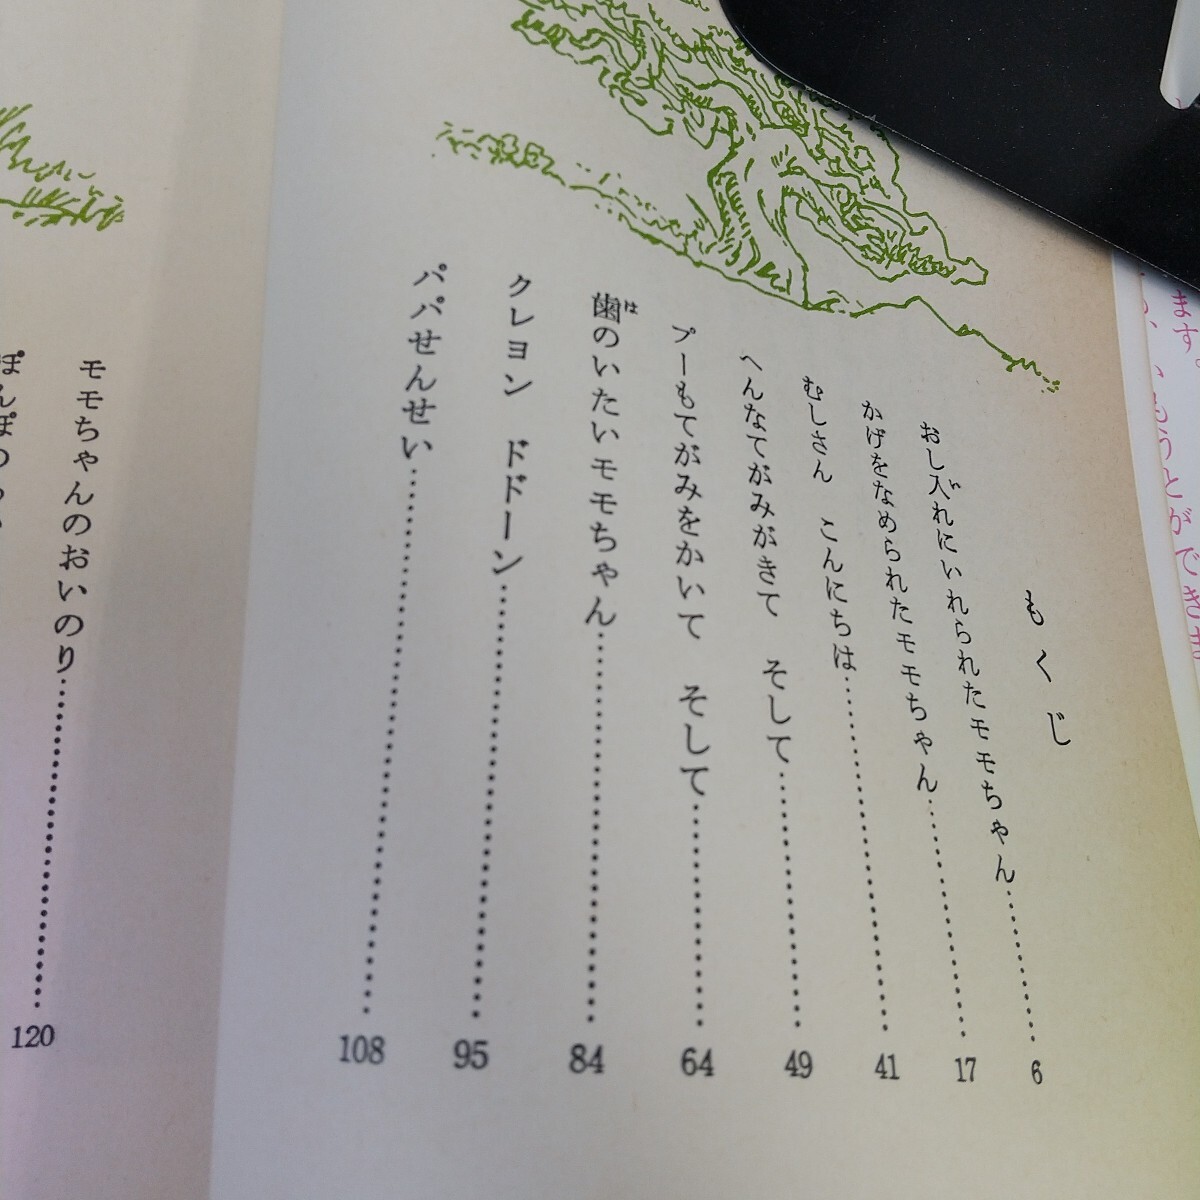 もくじ
おし入れにいれられたモモちゃん……………6
かげをなめられたモモちゃん……………17
むしさん　こんにちは……………41
へんなてがみがきて　そして……………49
プーもてがみをかいて　そして……………64
歯のいたいモモちゃん……………84
クレヨン　ドドーン……………95
パパせんせい……………108
モモちゃんのおいのり……………120